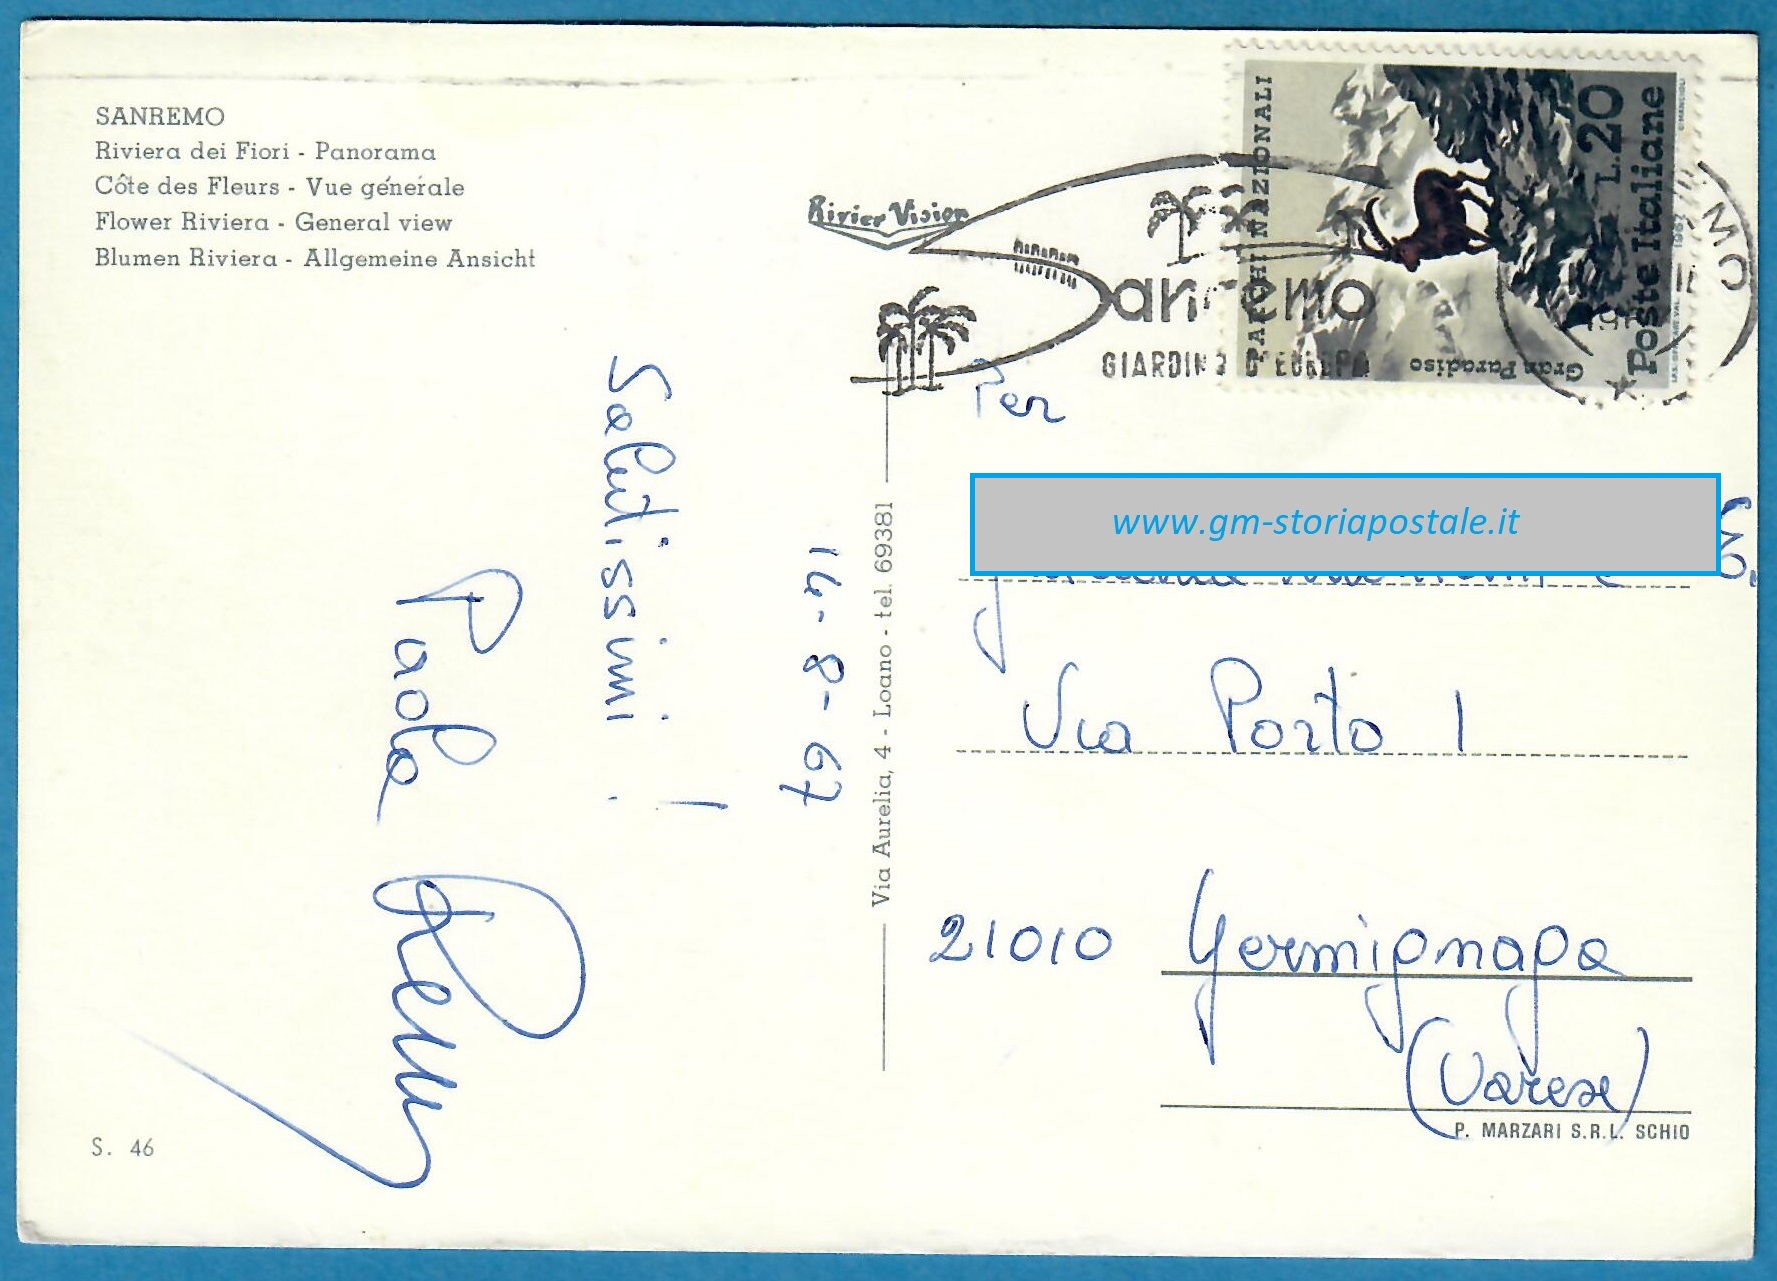 SANREMO
Riviera dei Fiori - Panorama
Côte des Fleurs - Vue générale
Flower Riviera - General view
Blumen Riviera - Allgemeine Ansicht
Salutissimi!
Paola
14-8-67
S. 46
Via Aurelia, 4 - Loano - tel. 69381
Rivier Vision
Sanremo
GIARDINO D'EUROPA
PARCHI NAZIONALI
Gran Paradiso
L.20
Poste Italiane
1967
Per
www.gm-storiapostale.it
Via Porto 1
21010 Germignaga
(Varese)
P. MARZARI S.R.L. SCHIO